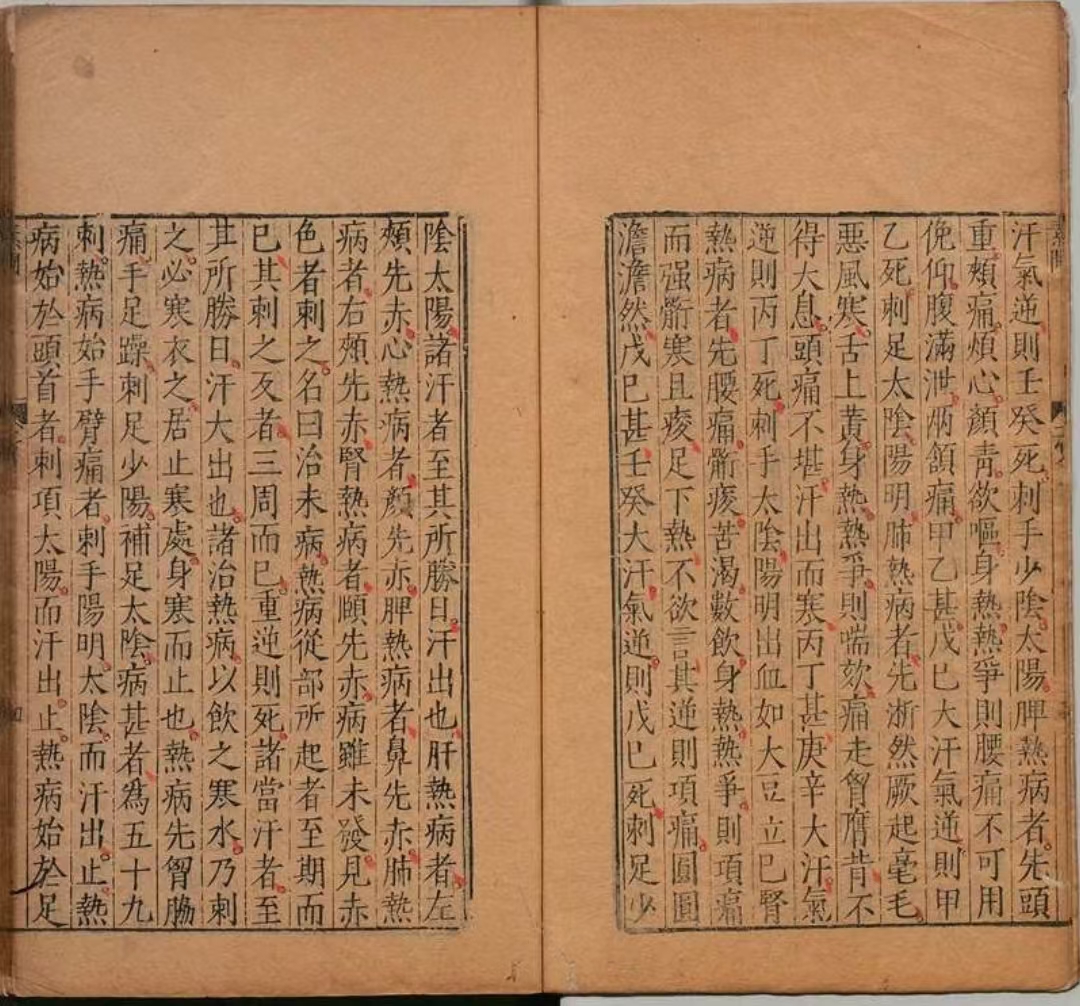 汗氣逆則壬癸死刺手少陰太陽脾熱病者先頭
重頰痛煩心顏青欲嘔身熱熱爭則腰痛不可用
俛仰腹滿泄兩頷痛甲乙甚戊巳大汗氣逆則甲
乙死刺足太陰陽明肺熱病者先淅然厥起毫毛
惡風寒舌上黃身熱熱爭則喘欬痛走胷膺背不
得大息頭痛不堪汗出而寒丙丁甚庚辛大汗氣
逆則丙丁死刺手太陰陽明出血如大豆立巳腎
熱病者先腰痛䯒痠苦渴數飲身熱熱爭則項痛
而强䯒寒且痠足下熱不欲言其逆則項痛圓圓
澹澹然戊巳甚壬癸大汗氣逆則戊巳死刺足少
陰太陽諸汗者至其所勝日汗出也肝熱病者左
頰先赤心熱病者顏先赤脾熱病者鼻先赤肺熱
病者右頰先赤腎熱病者頤先赤病雖未發見赤
色者刺之名曰治未病熱病從部所起者至期而
巳其刺之反者三周而巳重逆則死諸當汗者至
其所勝日汗大出也諸治熱病以飲之寒水乃刺
之必寒衣之居止寒處身寒而止也熱病先胷脇
痛手足躁刺足少陽補足太陰病甚者為五十九
刺熱病始手臂痛者刺手陽明太陰而汗出止熱
病始於頭首者刺項太陽而汗出止熱病始於足